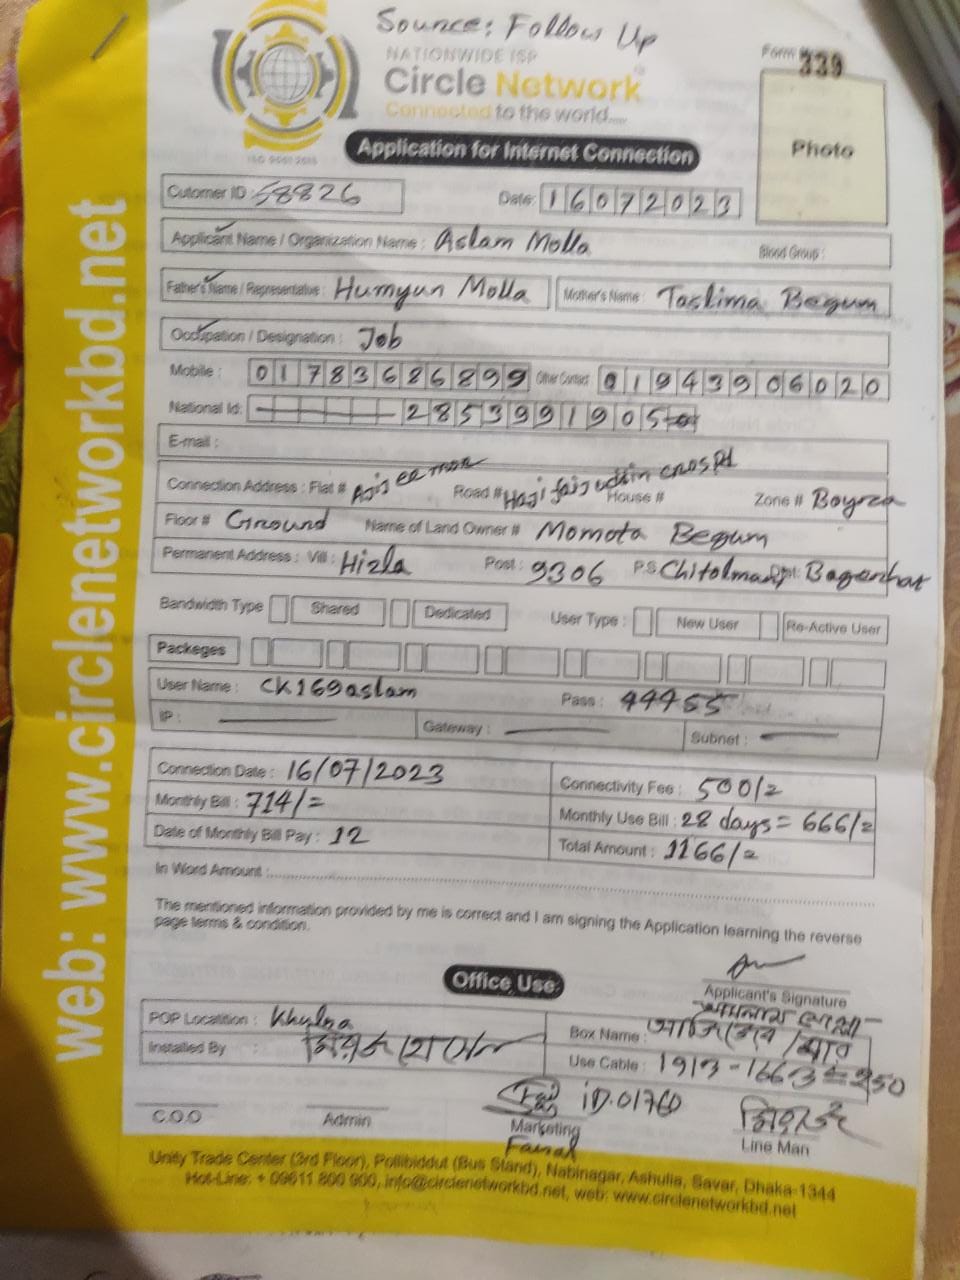 Source: Follow Up
NATIONWIDE ISP
Circle Network
Connected to the world.....
ISO 9001:2015
Form 339
Photo
Application for Internet Connection
Cutomer ID : 58826 Date: 16072023
Applicant Name / Organization Name : Aslam Molla Blood Group :
Father's Name / Representative : Humyun Molla Mother's Name : Taslima Begum
Occupation / Designation : Job
Mobile : 01783686899 Other Contact 01943906020
National Id: 2853991905
E-mail :
Connection Address : Flat # Road # Haji House # Zone # Boyra
Floor # Ground Name of Land Owner # Momota Begum
Permanent Address : Vill : Hizla Post : 9306 P.S Chitolmari Dist: Bagerhat
Bandwidth Type Shared Dedicated User Type : New User Re-Active User
Packeges
User Name : CK169aslam Pass : 44455
IP : Gateway : Subnet :
Connection Date : 16/07/2023 Connectivity Fee : 500/=
Monthly Bill : 714/= Monthly Use Bill : 28 days = 666/=
Date of Monthly Bill Pay : 12 Total Amount : 1166/=
In Word Amount :
The mentioned information provided by me is correct and I am signing the Application learning the reverse
page terms & condition.
Applicant's Signature
Office Use
POP Localition : Khulna Box Name :
Installed By : Use Cable : 1913-1663=250
ID.01760
C.O.O Admin Marketing Line Man
Faisal
Unity Trade Center (3rd Floor), Pollibiddut (Bus Stand), Nabinagar, Ashulia, Savar, Dhaka-1344
Hot-Line: + 09611 800 900, info@circlenetworkbd.net, web: www.circlenetworkbd.net
web: www.circlenetworkbd.net